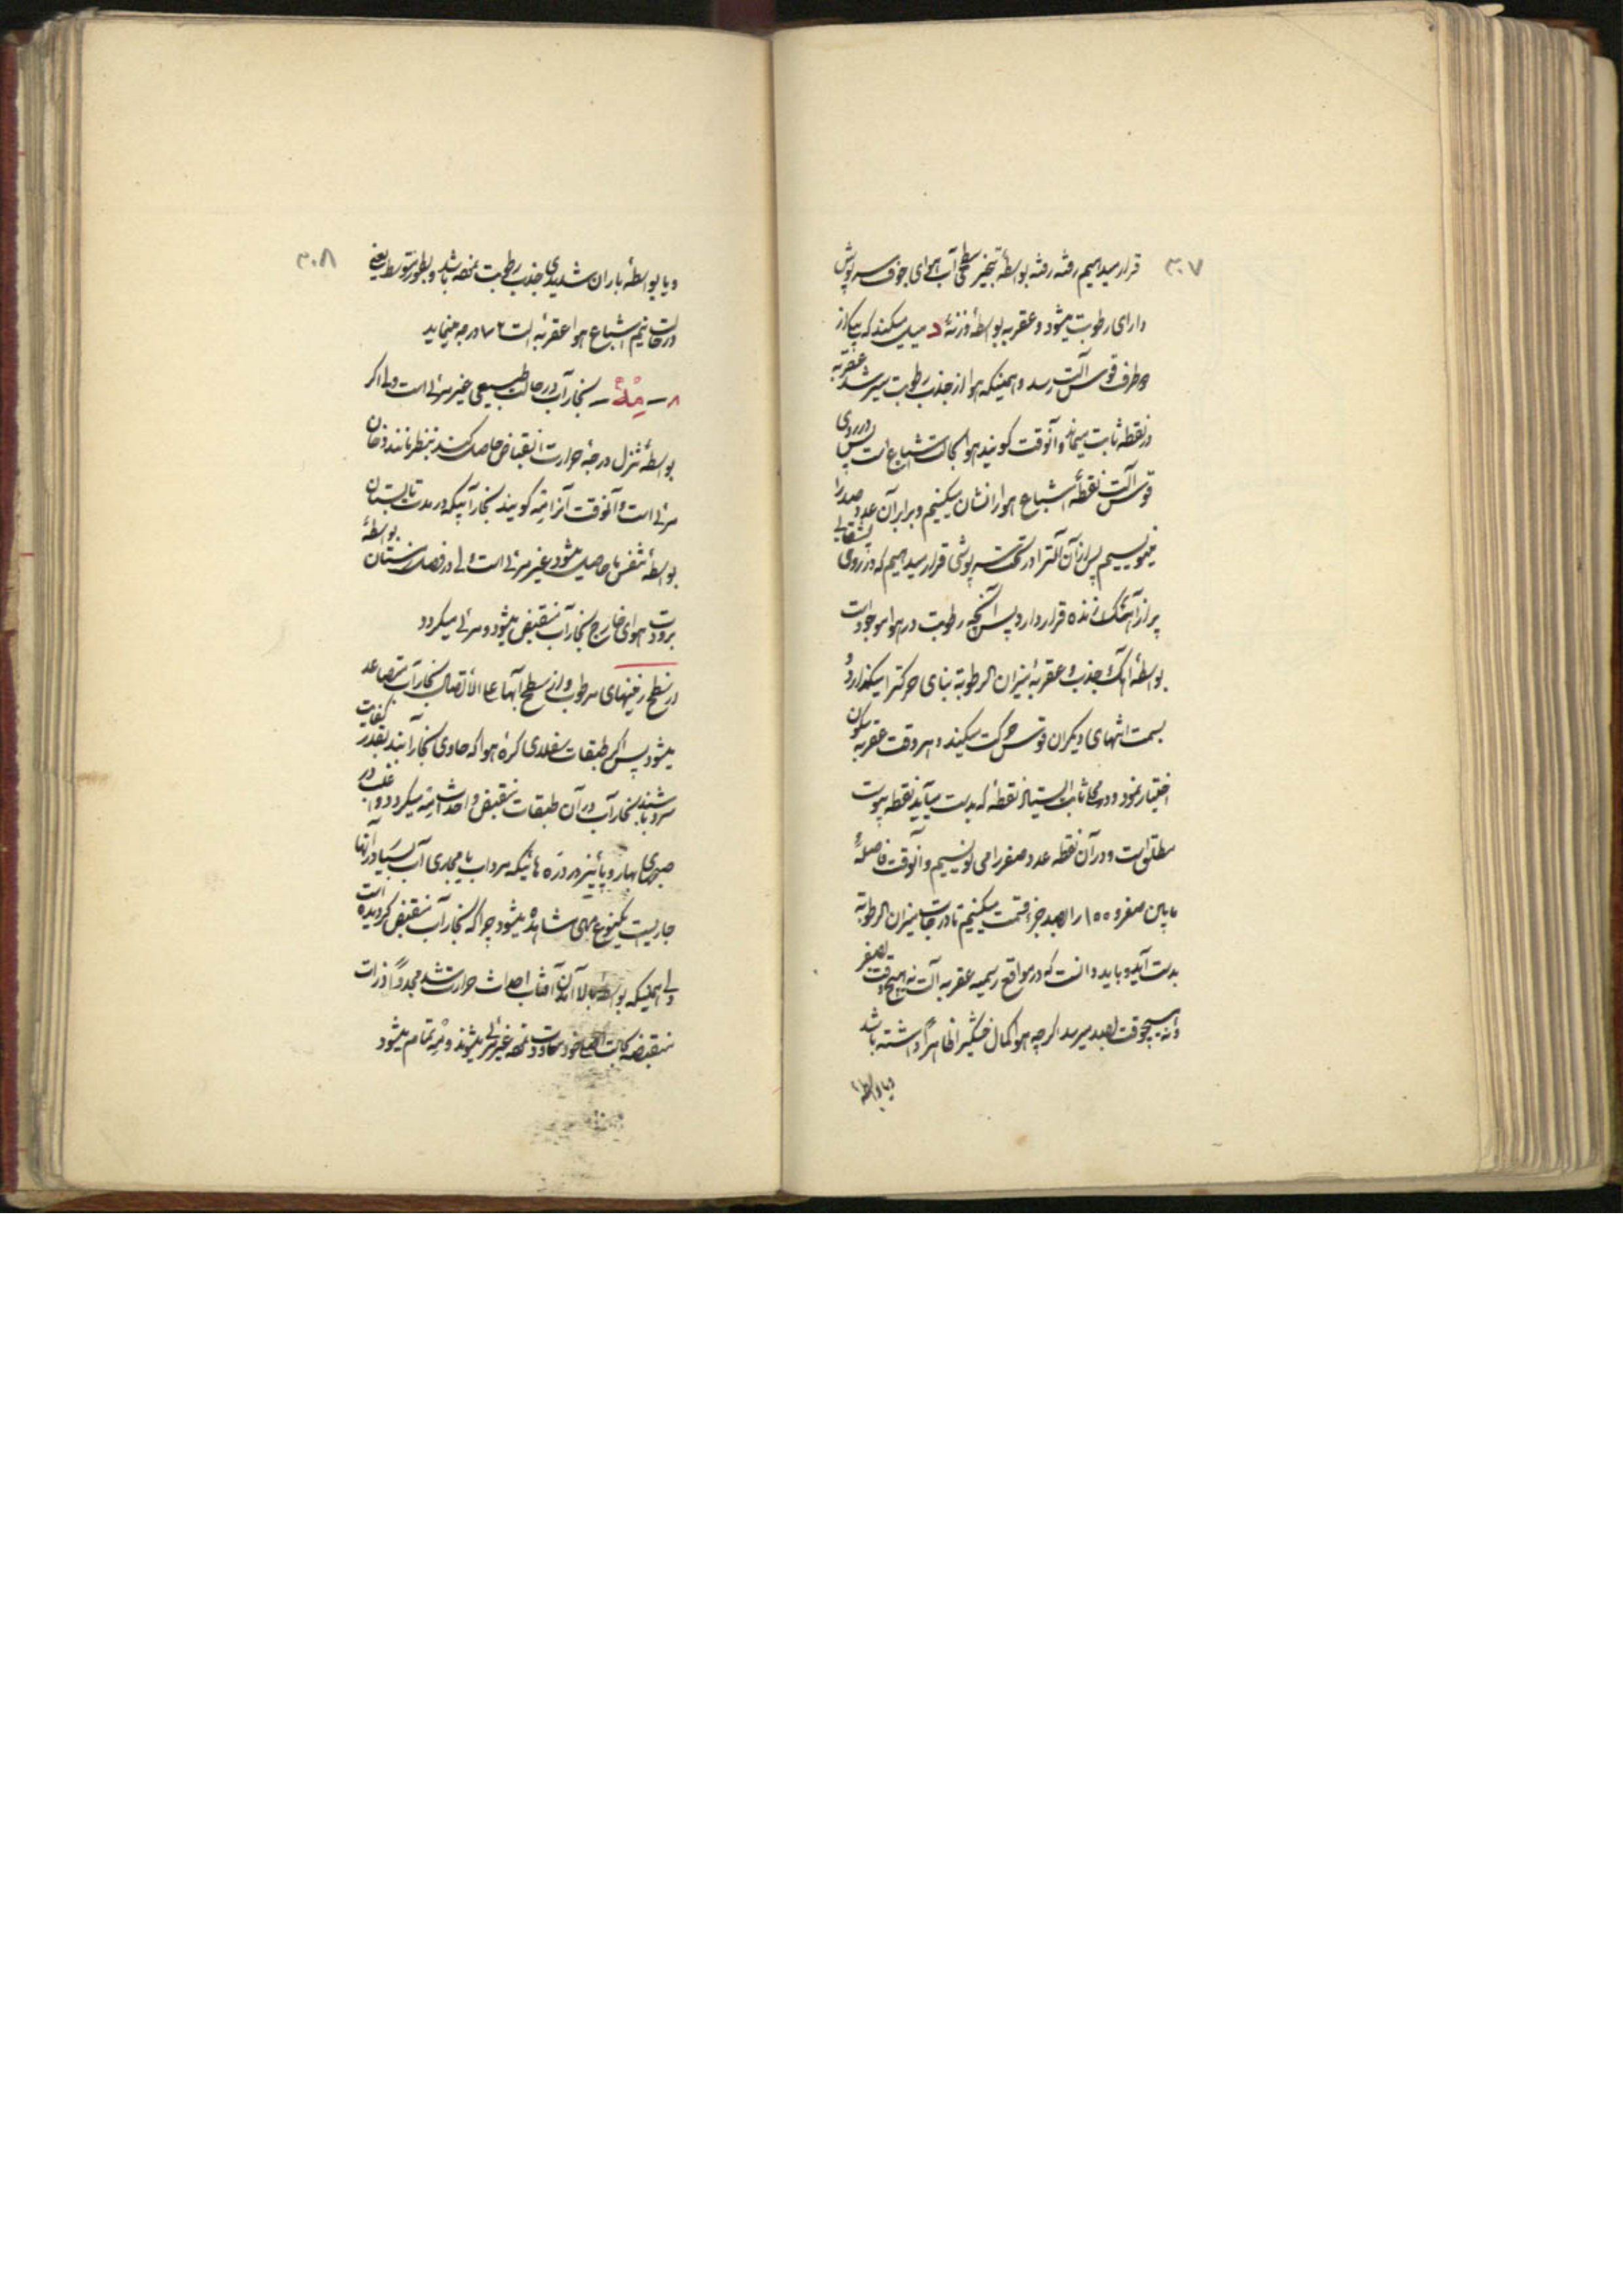 ۳۰۷
قرار میدهیم رفته رفته بواسطهٔ تبخیر سطحی آب هوای جوف سرپوش
دارای رطوبت میشود و عقربه بواسطهٔ وزنهٔ د میل میکند که بیکی از
دو طرف قوس آلت رسد و همینکه هوا از جذب رطوبت سیر شد عقربه
در نقطه ثابت میماند و آنوقت گویند هوا بحالت اشباع است پس در روی
قوس آلت نقطهٔ اشباع هوا را نشان میکنیم و برابر آن عدد صد را
مینویسیم پس از آن آلترا در تحت سرپوشی قرار میدهیم که در روی بشقابی
پر از آهک زنده قرار دارد پس آنچه رطوبت در هوا موجود است
بواسطهٔ آهک جذب و عقربهٔ میزان الرطوبة بنای حرکترا میگذارد و
بسمت انتهای دیگر آن قوس حرکت میکند و هر وقت عقربه سکون
اختیار نمود و در محلی ثابت ایستاد نقطهٔ که بدست میآید نقطه یبوست
مطلق است و در آن نقطه عدد صفر را می نویسیم و آنوقت فاصلهٔ
مابین صفر و ۱۰۰ را بصد جزء قسمت میکنیم تا درجات میزان الرطوبة
بدست آید و باید دانست که در مواقع رسمیه عقربه آلت نه هیچوقت بصفر
و نه هیچوقت بصد میرسد اگرچه هوا کمال خشکی را ظاهراً داشته باشد
و یا بواسطهٔ
۳۰۸
و یا بواسطهٔ باران شدیدی جذب رطوبت نموده باشد و بطور متوسط یعنی
در حالت نیم اشباع هوا عقربهٔ آلت ۷۲ درجه مینماید
۸ – مِهْ – بخار آب در حالت طبیعی غیر مرئی است ولی اگر
بواسطهٔ تنزل درجهٔ حرارت انقباض حاصل کند بنظر مانند دخان
مرئی است و آنوقت آنرا مِه گویند بخار آبیکه در مدت تابستان
بواسطهٔ تنفس ما حاصل میشود غیر مرئی است ولی در فصل زمستان بواسطهٔ
برودت هوای خارج بخار آب منقبض میشود و مرئی میگردد
در سطح زمینهای مرطوب و از سطح آبها علی الاتصال بخار آب متصاعد
میشود پس اگر طبقات سفلای کرهٔ هوا که حاوی بخار آبند بقدر کفایت
سرد باشند بخار آب در آن طبقات منقبض و احداث مِه میگردد و اغلب در
صبحهای بهار و پائیز در درّه هائیکه مرداب یا مجاری آب بسیار در آنها
جاریست یکنوع مهی مشاهده میشود چرا که بخار آب منقبض گردیده است
ولی همینکه بواسطه بالا آمدن آفتاب احداث حرارت شد مجدداً ذرات
منقبضه بحالت خود معاودت نموده غیر مرئی میشوند و مِه تمام میشود